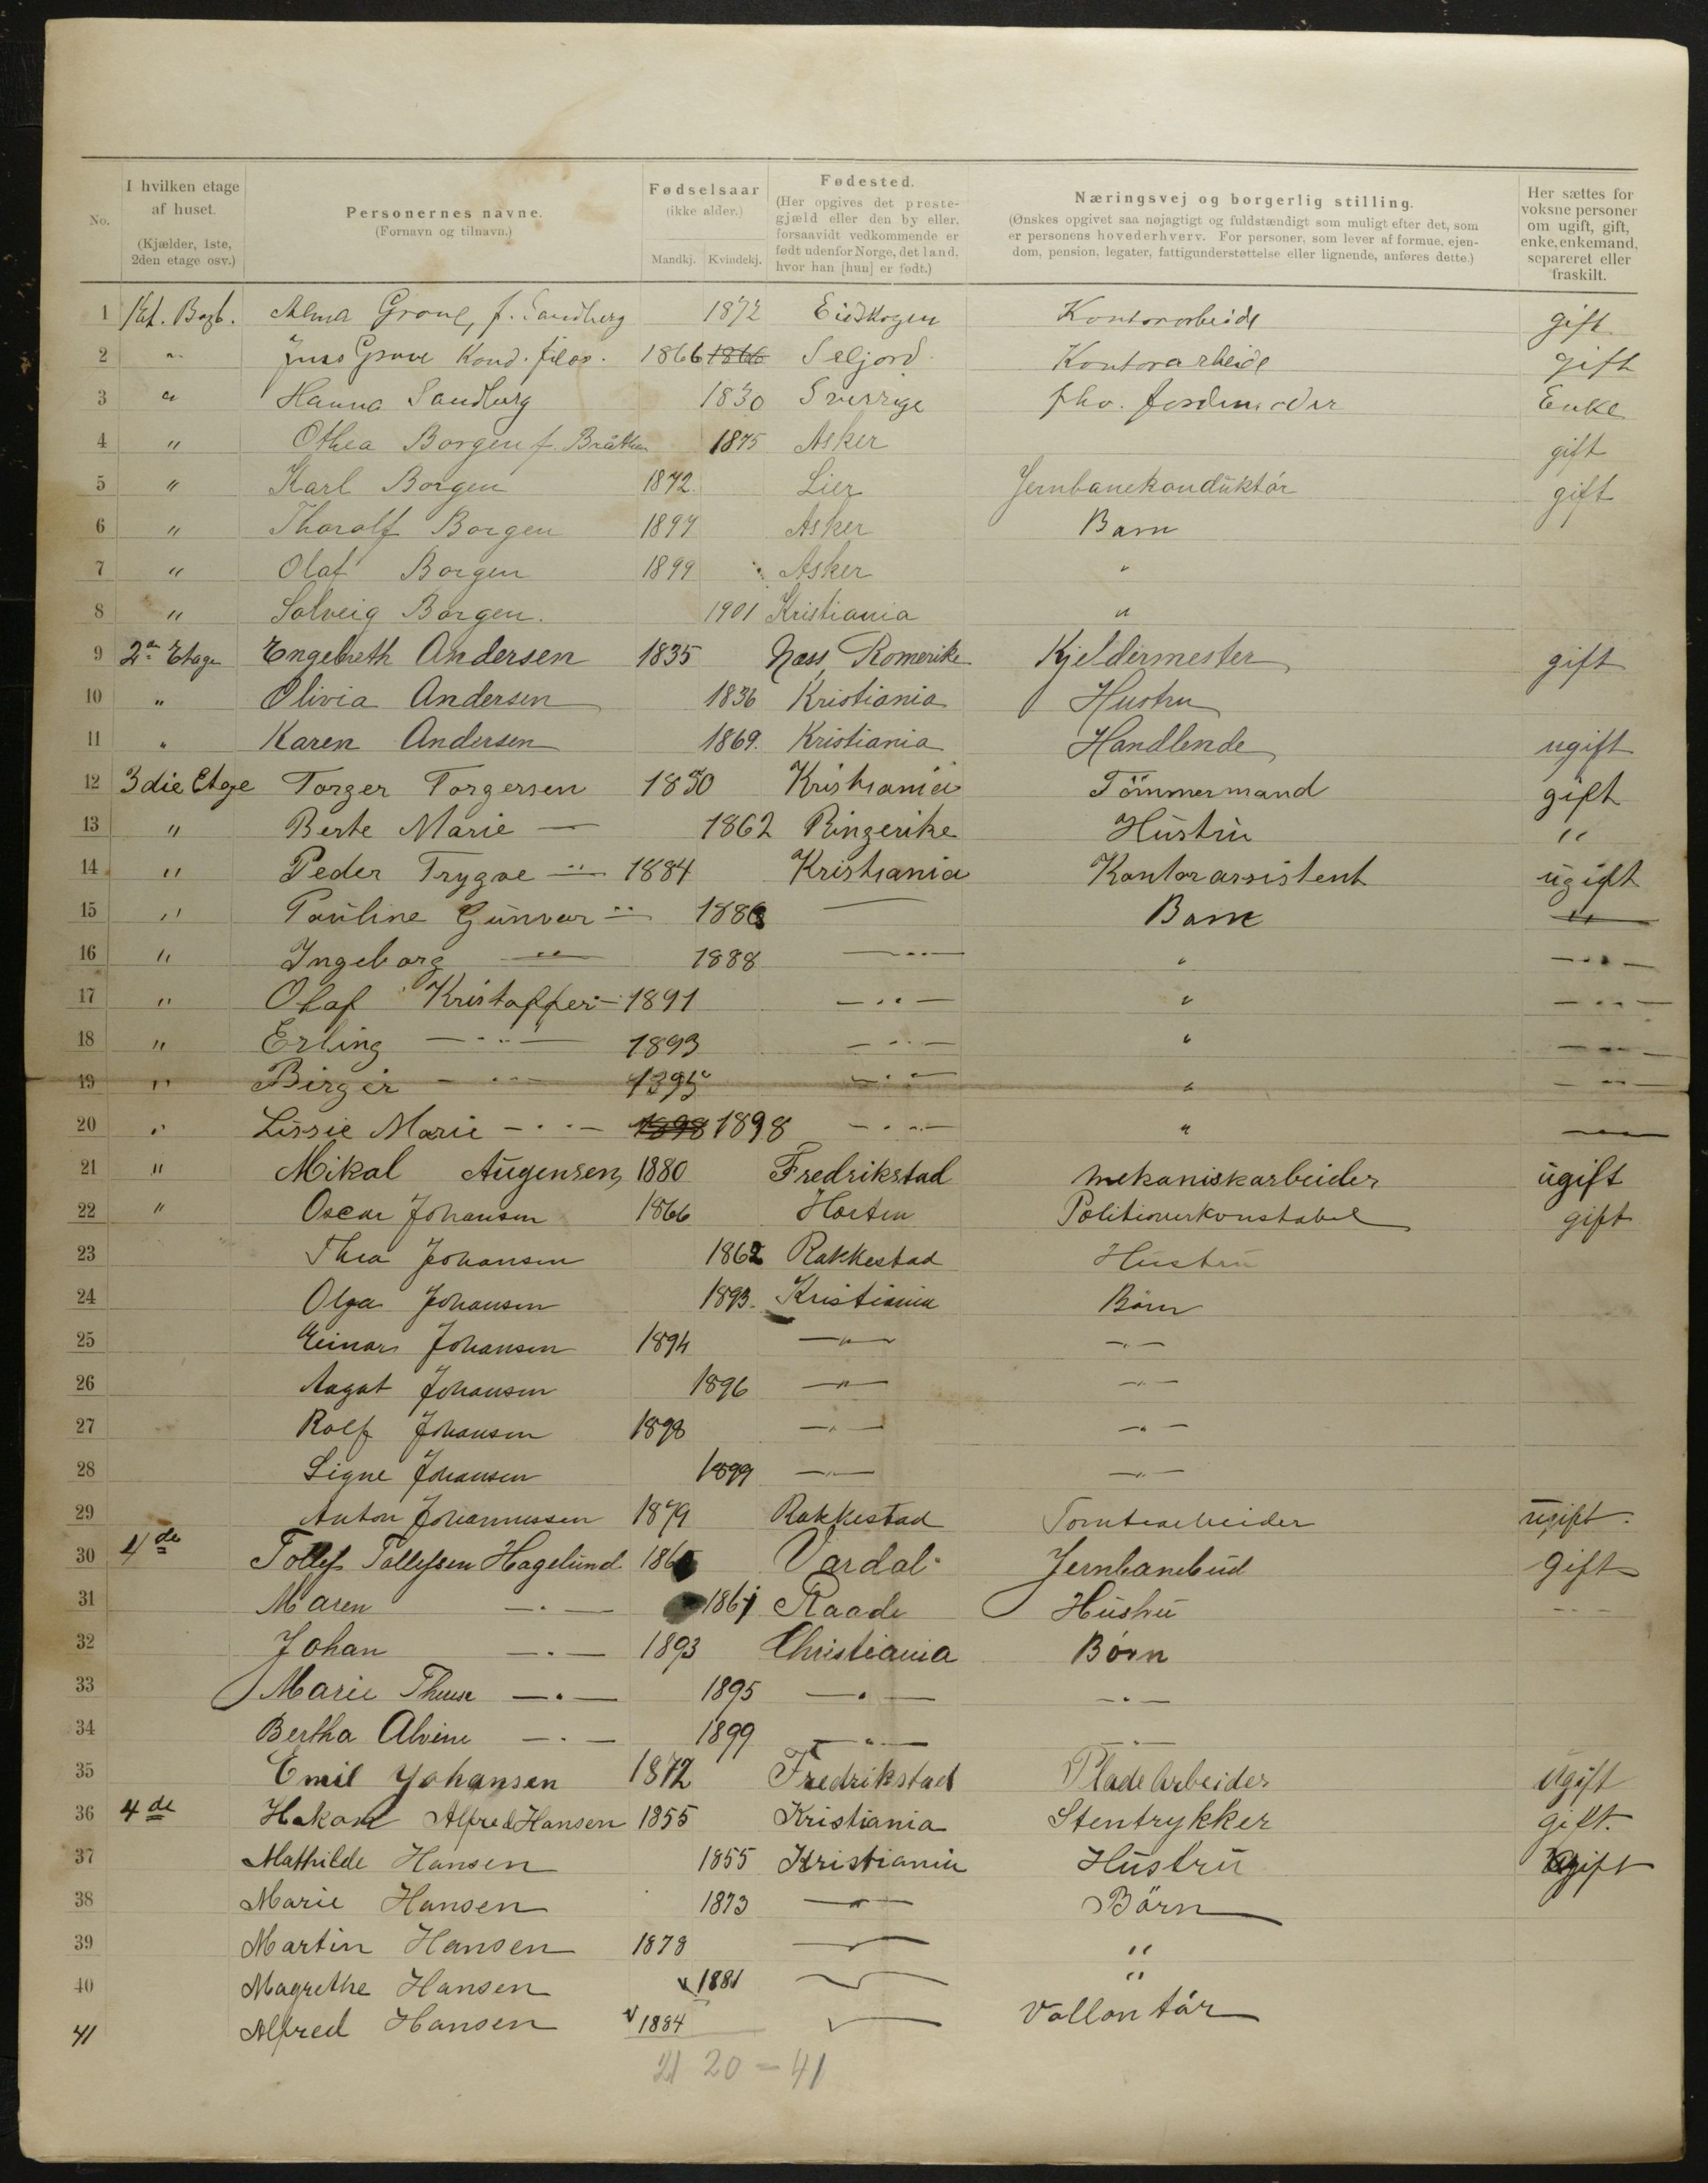 No.
I hvilken etage af huset. (Kjælder, 1ste, 2den etage osv.)
Personernes navne. (Fornavn og tilnavn.)
Fødselsaar (ikke alder.) Mandkj. Kvindekj.
Fødested. (Her opgives det prestegjæld eller den by eller, forsaavidt vedkommende er født udenfor Norge, det land, hvor han [hun] er født.)
Næringsvej og borgerlig stilling. (Ønskes opgivet saa nøjagtigt og fuldstændigt som muligt efter det, som er personens hovederhverv. For personer, som lever af formue, ejendom, pension, legater, fattigunderstøttelse eller lignende, anføres dette.)
Her sættes for voksne personer om ugift, gift, enke, enkemand, separeret eller fraskilt.
1 Alma Grove, f. Sandberg 1872 Eidskogen Kontorarbeide gift
2 " Jens Grove Kand. filos. 1866 1866 Seljord Kontorarbeide gift
3 " Hanna Sandberg 1830 Sverrige fhv. Jordmoder Enke
4 " Othea Borgen f. Bråthen 1875 Asker gift
5 " Karl Borgen 1872. Lier Jernbanekonduktór gift
6 " Thoralf Borgen 1897 Asker Barn
7 " Olaf Borgen 1899 Asker "
8 " Solveig Borgen. 1901 Kristiania "
9 2en Etage Engebreth Andersen 1835 Næs Romerike Kjeldermester gift
10 " Olivia Andersen 1836 Kristiania Hustru
11 " Karen Andersen 1869. Kristiania Handlende ugift
12 3die Etage Torger Torgersen 1850 Kristiania Tömmermand gift
13 " Berte Marie — 1862 Ringerike Hustru "
14 " Peder Trygve — " — 1884 Kristiania Kontorassistent ugift
15 " Pauline Gunvor — " — 1886 — Barn "
16 " Ingeborg — " — 1888 — " — " — " —
17 " Olaf Kristoffer — " — 1891 — " — " — " —
18 " Erling — " — 1893 — " — " — " —
19 " Birger — " — 1895 — " — " — " —
20 " Lissie Marie — " — 1898 1898 — " — " — " —
21 " Mikal Augensen 1880 Fredrikstad mekaniskarbeider ugift
22 " Oscar Johansen 1866 Horten Politioverkonstabel gift
23 Thea Johansen 1862 Rakkestad Hustru
24 Olga Johansen 1893. Kristiania Börn
25 Einar Johansen 1894 — " — — " —
26 Aagot Johansen 1896 — " — — " —
27 Rolf Johansen 1898 — " — — " —
28 Signe Johansen 1899 — " — — " —
29 Anton Johannessen 1879 Rakkestad Tomtearbeider ugift.
30 4de Tollef Tollefsen Hagelund Vardal Jernbanebud gift
31 Maren — " — 1861 Raade Hustru — " —
32 Johan — " — 1893 Christiania Børn
33 Marie — " — 1895 — " — — " —
34 Bertha Alvine — " — 1899 — " — — " —
35 Emil Johansen 1872 Fredrikstad Pladearbeider ugift
36 4de Hakon Alfred Hansen 1855 Kristiania Stentrykker gift.
37 Mathilde Hansen 1855 Kristiania Hustru gift
38 Marie Hansen 1873 — " — Börn
39 Martin Hansen 1878 — " — "
40 Magrethe Hansen 1881 — " — "
41 Alfred Hansen 1884 — " — Vollontár
21 20 = 41